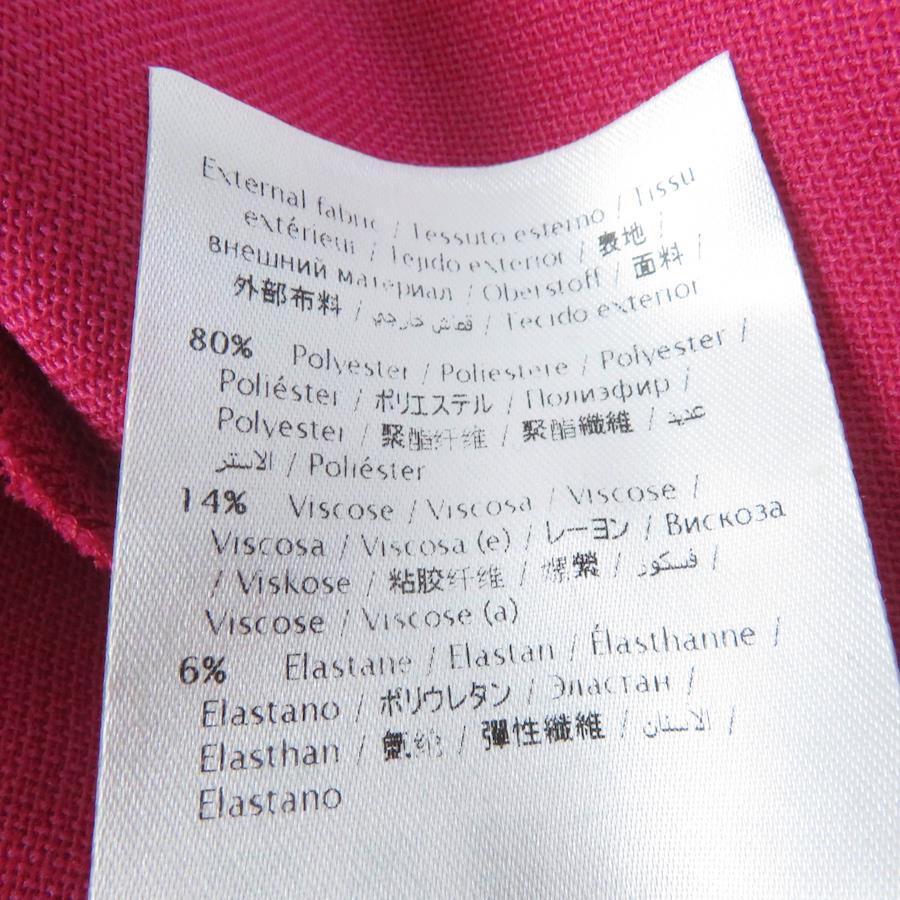 External fabric / Tessuto esterno / Tissu
extérieur / Tejido exterior / 表地 /
внешний материал / Oberstoff / 面料 /
外部布料 / قماش خارجي / Tecido exterior
80% Polyester / Poliestere / Polyester /
Poliéster / ポリエステル / Полиэфир /
Polyester / 聚酯纤维 / 聚酯纖維 / عديد
الاستر / Poliéster
14% Viscose / Viscosa / Viscose /
Viscosa / Viscosa (e) / レーヨン / Вискоза
/ Viskose / 粘胶纤维 / 嫘縈 / فسكوز /
Viscose / Viscose (a)
6% Elastane / Elastan / Élasthanne /
Elastano / ポリウレタン / Эластан /
Elasthan / 氨纶 / 彈性纖維 / الاستان /
Elastano